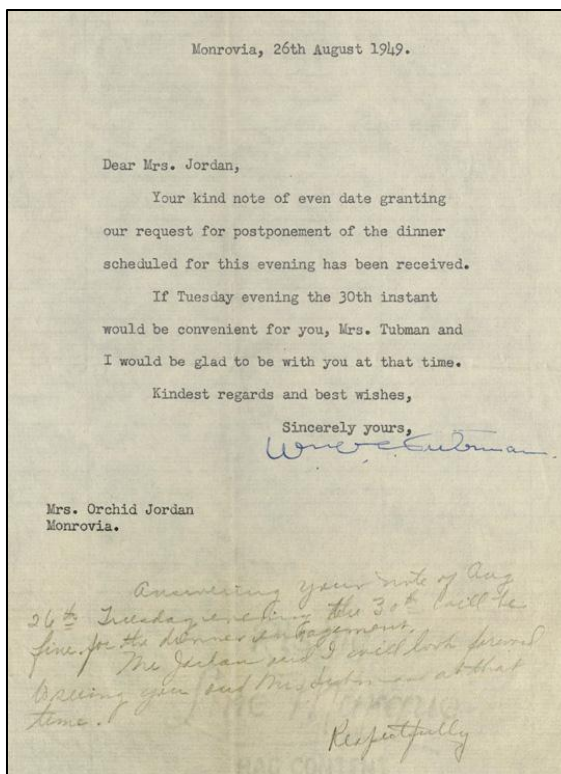 Monrovia, 26th August 1949.
Dear Mrs. Jordan,
Your kind note of even date granting
our request for postponement of the dinner
scheduled for this evening has been received.
If Tuesday evening the 30th instant
would be convenient for you, Mrs. Tubman and
I would be glad to be with you at that time.
Kindest regards and best wishes,
Sincerely yours,
Tubman.
Mrs. Orchid Jordan
Monrovia.
Answering your note of Aug
26th Tuesday evening the 30th will be
fine for the dinner engagement.
Mr Jordan and I will look forward
seeing you and Mrs Tubman at that
time.
Respectfully